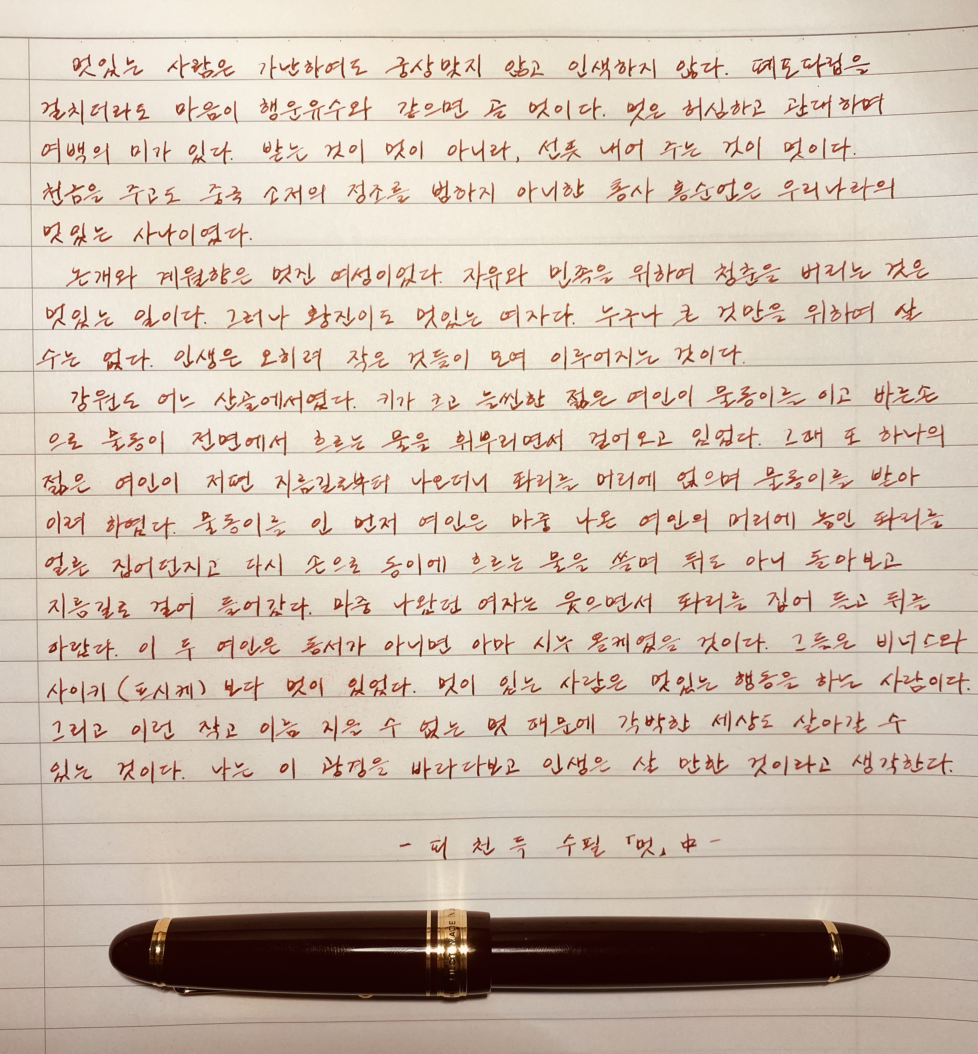 멋있는 사람은 가난하여도 궁상맞지 않고 인색하지 않다. 폐포파립을
걸치더라도 마음이 행운유수와 같으면 곧 멋이다. 멋은 허심하고 관대하며
여백의 미가 있다. 받는 것이 멋이 아니라, 선뜻 내어 주는 것이 멋이다.
천금을 주고도 중국 소저의 정조를 범하지 아니한 통사 홍순언은 우리나라의
멋있는 사나이였다.
논개와 계월향은 멋진 여성이었다. 자유와 민족을 위하여 청춘을 버리는 것은
멋있는 일이다. 그러나 황진이도 멋있는 여자다. 누구나 큰 것만을 위하여 살
수는 없다. 인생은 오히려 작은 것들이 모여 이루어지는 것이다.
강원도 어느 산골에서였다. 키가 크고 늘씬한 젊은 여인이 물동이를 이고 바른손
으로 물동이 전면에서 흐르는 물을 휘뿌리면서 걸어오고 있었다. 그때 또 하나의
젊은 여인이 저편 지름길로부터 나오더니 똬리를 머리에 얹으며 물동이를 받아
이려 하였다. 물동이를 인 먼저 여인은 마중 나온 여인의 머리에 놓인 똬리를
얼른 집어던지고 다시 손으로 동이에 흐르는 물을 쓸며 뒤도 아니 돌아보고
지름길로 걸어 들어갔다. 마중 나왔던 여자는 웃으면서 똬리를 집어 들고 뒤를
따랐다. 이 두 여인은 동서가 아니면 아마 시누 올케였을 것이다. 그들은 비너스와
사이키(프시케)보다 멋이 있었다. 멋이 있는 사람은 멋있는 행동을 하는 사람이다.
그리고 이런 작고 이름 지을 수 없는 멋 때문에 각박한 세상도 살아갈 수
있는 것이다. 나는 이 광경을 바라다보고 인생은 살 만한 것이라고 생각한다.
- 피 천 득 수필 「멋」 中 -